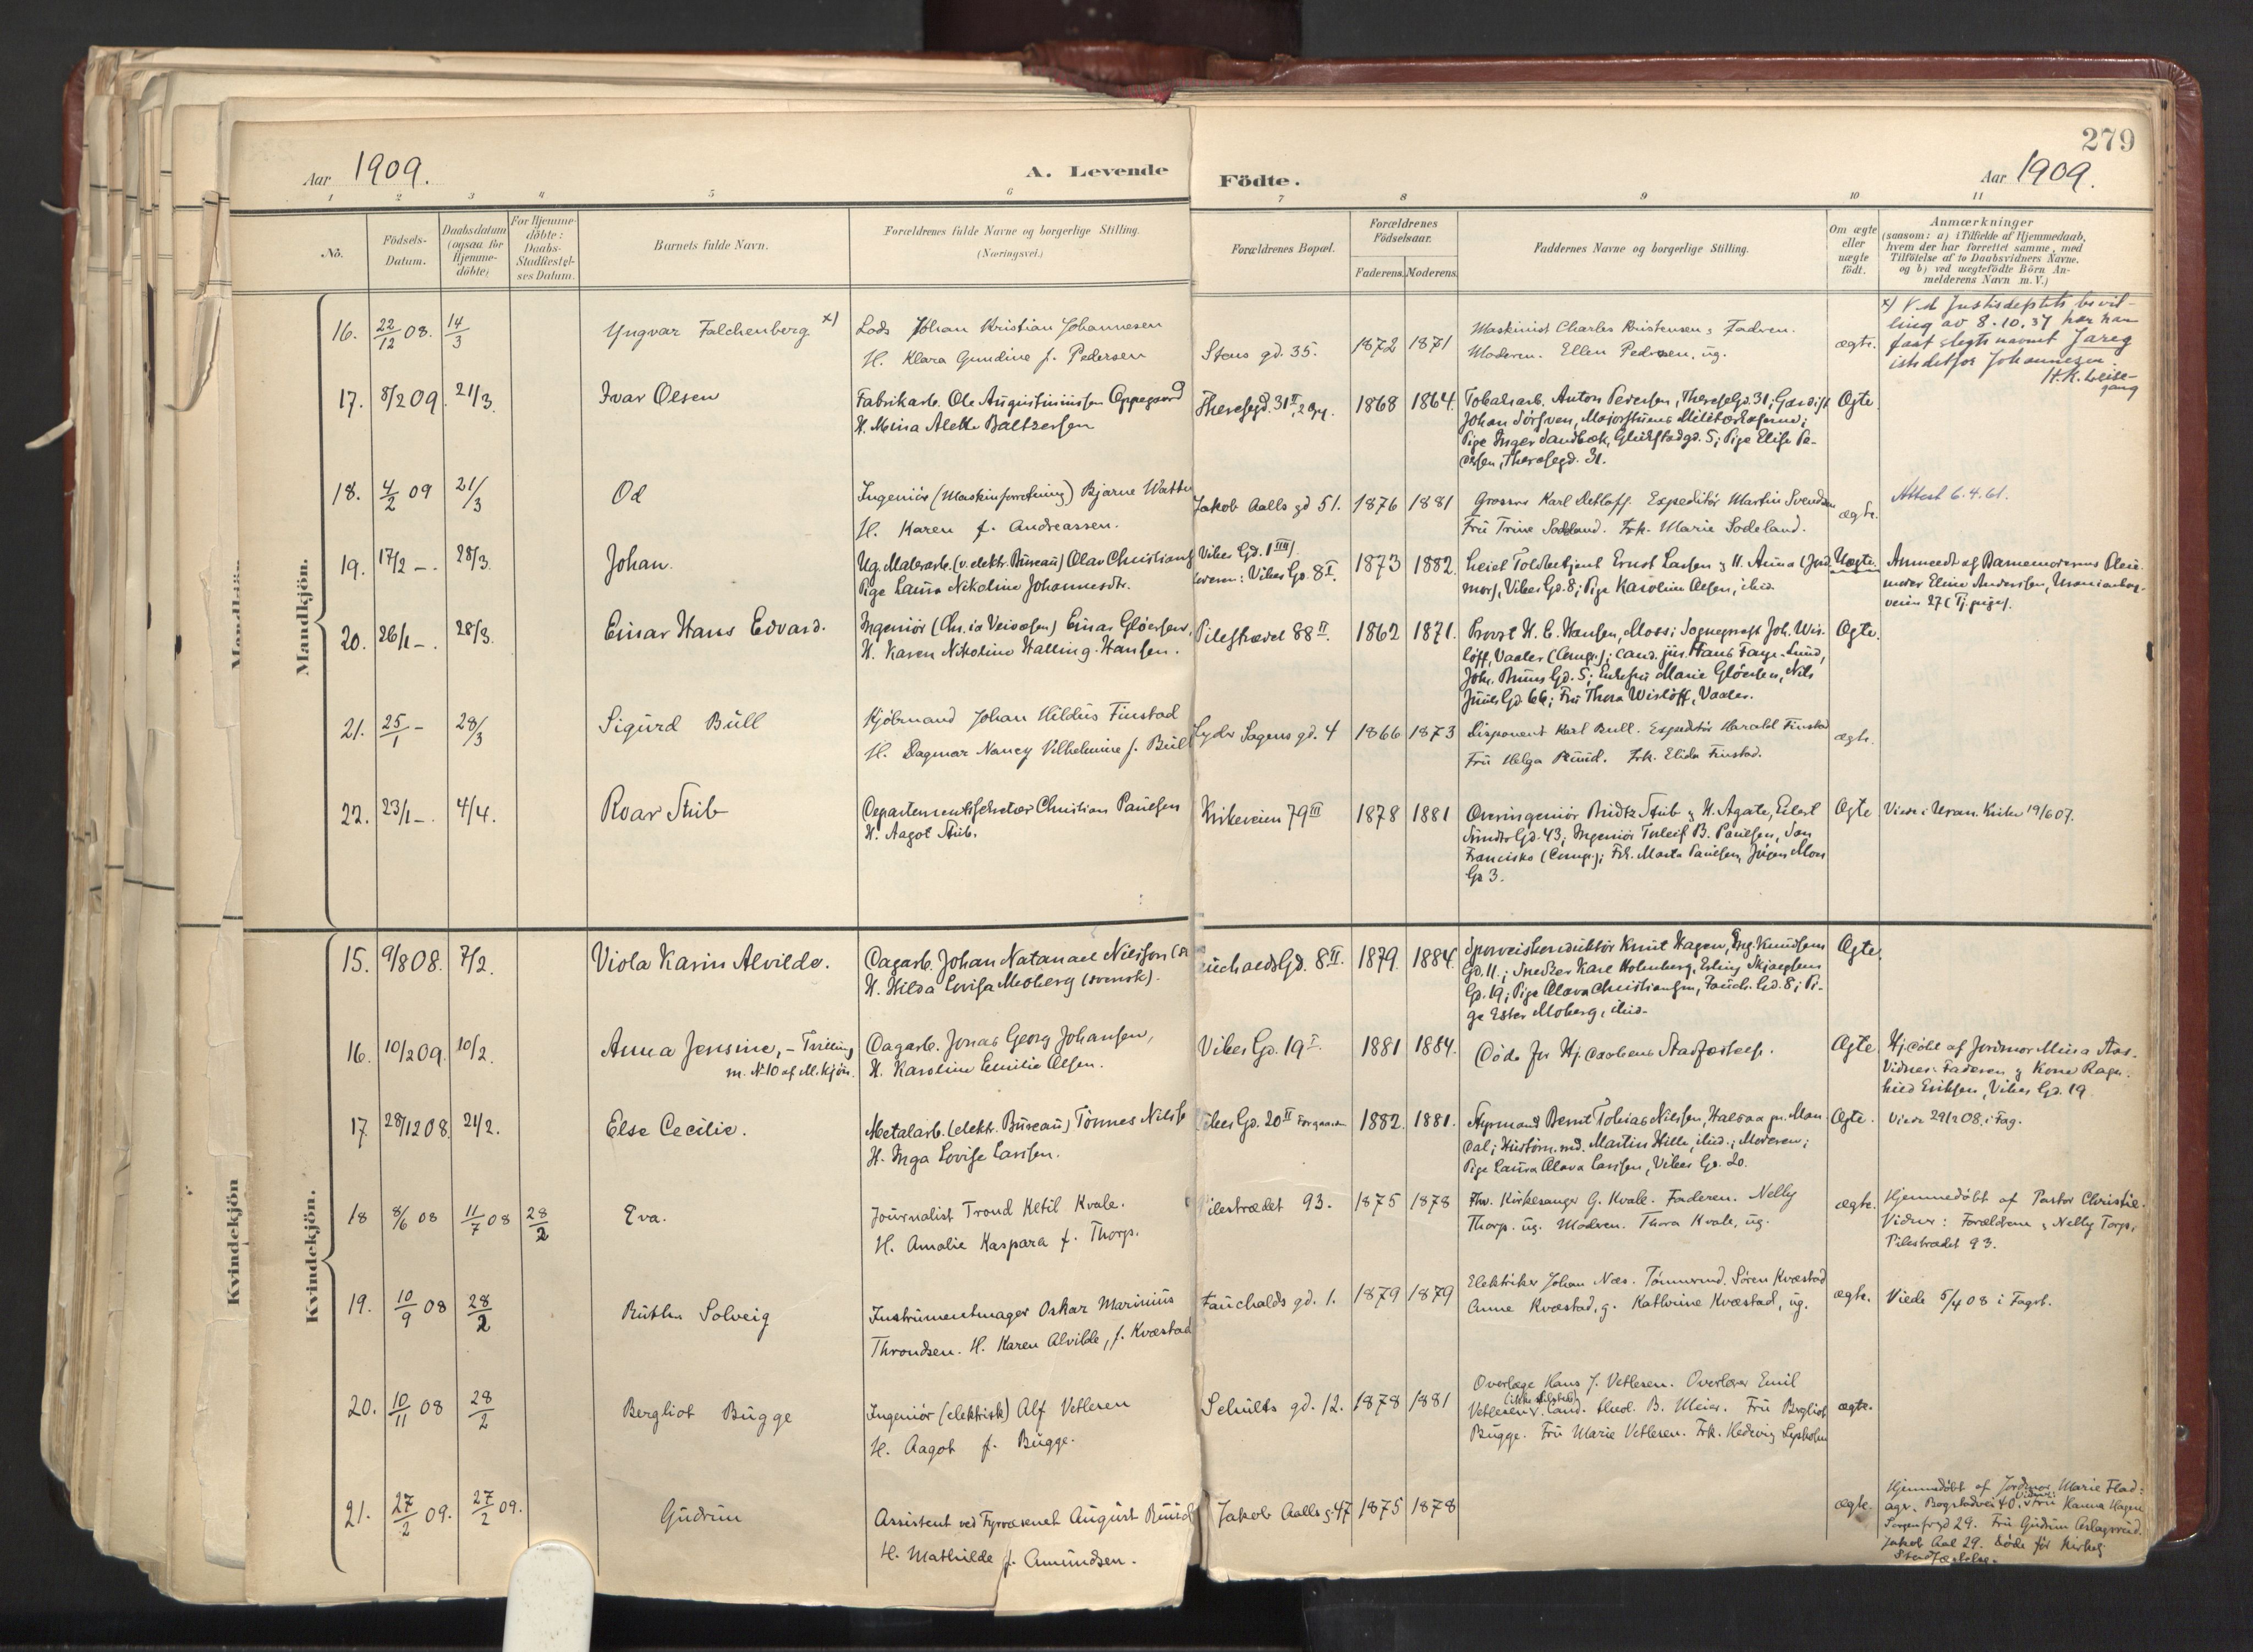 279
Aar 1909.
A. Levende
Födte.
Aar 1909.
1 2 3 4 5 6 7 8 9 10 11
No.
Födsels-
Datum.
Daabsdatum
(ogsaa for
Hjemme-
döbte)
For Hjemme-
döbte:
Daabs-
Stadfæstel-
ses Datum.
Barnets fulde Navn.
Forældrenes fulde Navne og borgerlige Stilling.
(Næringsvei.)
Forældrenes Bopæl.
Forældrenes
Födselsaar.
Faderens. Moderens.
Faddernes Navne og borgerlige Stilling.
Om ægte
eller
uægte
födt.
Anmærkninger
(saasom: a) i Tilfælde af Hjemmedaab,
hvem der har forrettet samme, med
Tilföielse af to Daabsvidners Navne.
og b) ved uægtefödte Börn An-
melderens Navn m. V.)
Mandkjön.
16. 22/12 08. 14/3
Yngvar Falchenberg x)
Lods Johan Kristian Johannesen
H. Klara Gundine f. Pedersen
Stens gd. 35.
1872 1871
Maskinist Charles Kristensen & Faderen.
Moderen. Ellen Pedersen, ug.
ægte.
x) V. de Justisdeptets bevil-
ling av 8.10.37 har han
faat slegtsnavnet Jareg
istedetfor Johannesen.
17. 8/2 09. 21/3.
Ivar Olsen
Fabrikarb. Ole Augustinussen Oppegaard
H. Mina Alette Baltzersen
Theresegd. 31 II, 2 Opg.
1868 1864.
Tobaksarb. Anton Pedersen, Therese Gd. 31; Gardist
Johan Sørsveen, Majorstuens Militærkaserne;
Pige Inger Sandbæk, Glückstadgd. 5; Pige Elise Pe-
dersen, Theresegd. 31.
Ægte
18. 4/2 09 21/3
Od
Ingeniør (Maskinforretning) Bjarne
H. Karen f. Andreassen.
Jakob Aalls gd 51.
1876 1881
Grosser Karl Detloff. Expeditør Martin Svendsen
Fru Trine Sodeland. Frk. Marie Sodeland.
ægte.
Attest 6.4.61.
19. 17/2 -. 28/3.
Johan.
Ug. Malerarb. (v. elektr. Bureau) Olav Christians
Pige Laura Nikoline Johannesdtr.
Vibes Gd. 1
: Vibes Gd. 8 I.
1873 1882.
Leiet Toldbetjent Ernst Larsen & H. Anna (Jord-
mor), Vibes Gd. 8; Pige Karoline Olsen, ibid.
Uægte.
Anmeldt af Barnemoderens Pleie-
moder Eline Andersen, Uranienborg-
veien 27 (Tj.pige).
20. 26/1 -. 28/3.
Einar Hans Edvard.
Ingeniør (Chr.ia Veivæsen) Einar Gløersen,
H. Karen Nikoline Halling-Hansen.
Pilestrædet 88 II.
1862 1871.
Provst H. C. Hansen, Moss; Sogneprest Joh. Wis-
löff, Vaaler; cand. jur. Hans Faye-Lund,
Joh. Bruns Gd. 5; Enkefru Marie Gløersen, Nils
Juels Gd. 66; Fru Thora Wislöff, Vaaler.
Ægte.
21. 25/1 - 28/3
Sigurd Bull
Kjöbmand Johan Hildus Finstad
H. Dagmar Nancy Vilhelmine f. Bull
Lyder Sagens gd. 4
1866 1873
Disponent Karl Bull. Expeditør Harald Finstad
Fru Helga. Frk. Elida Finstad.
ægte.
22. 23/1 -. 4/4.
Roar Stub
Departementssekretær Christian Paulsen
H. Aagot Stub.
Kirkeveien 79 III
1878 1881
Overingeniør Stub & H. Agate, Eilert
Sundts Gd. 43; Ingeniør B. Paulsen, San
Francisko; Frk. Marta Paulsen, Jørgen Moes
Gd. 3.
Ægte
Viede i Uran. Kirke 19/6 07.
Kvindekjön.
15. 9/8 08. 7/2.
Viola Karin Alvilde.
Dagarb. Johan Natanael Nilsson
H. Hilda Lovisa Moberg (svensk).
auchalds Gd. 8 II.
1879. 1884.
Sporveiskonduktör Knut Hagen, Ing. Knudsens
Gd. 11.; Snedker Karl Holmberg, Erling Skjalgsens
Gd. 19; Pige Olava Christiansen, Fauch. Gd. 8; Pi-
ge Ester Moberg, ibid.
Ægte.
16. 10/2 09. 10/2.
Anna Jensine, - Tvilling
m. No 10 af M.kjön.
Dagarb. Jonas Georg Johansen,
H. Karoline Emilie Olsen.
Vibes Gd. 19 I.
1881 1884.
Döde för Hj.daabens Stadfæstelse.
Ægte
Hj.döbt af Jordmor Mina Aas.
Vidner: Faderen & Kone Ragn-
hild Eriksen, Vibes Gd. 19.
17. 28/12 08. 21/2.
Else Cecilie.
Metalarb. (elektr. Bureau) Tönnes Nilse
H. Inga Lovise Larsen.
Vibes Gd. 20 II Forgaarden
1882. 1881.
Styrmand Bernt Tobias Nilsen, Halsaa pr. Man-
dal; Martin Hille, ibid.; Moderen;
Pige Laura Olava Larsen, Vibes Gd. 20.
Ægte.
Viede 29/2 08 i Fag.
18 8/6 08 11/7 08 28/2
Eva.
Journalist Trond Ketil Kvale.
H. Amalie Kaspara f. Thorp.
Pilestrædet 93.
1875 1878
Fhv. Kirkesanger G. Kvale. Faderen. Nelly
Thorp. ug. Moderen. Thora Kvale, ug.
ægte.
Hjemmedöbt af Pastor Christie.
Vidner: Forældrene & Nelly Torp,
Pilestrædet 93.
19. 10/9 08 28/2
Ruth Solveig
Instrumentmager Oskar Marinius
Throndsen. H. Karen Alvilde, f. Kvæstad
Fauchalds gd. 1.
1879 1879
Elektriker Johan Næs. Tömmermd. Sören Kvæstad
Anne Kvæstad, g. Kathrine Kvæstad, ug.
ægte.
Viede 5/4 08 i Fagerb.
20. 10/11 08 28/2
Bergliot Bugge
Ingeniör (elektrisk) Alf Vetlesen
H. Aagot f. Bugge.
Schultz gd. 12.
1878 1881
Overlæge Hans J. Vetlesen. Overlærer Emil
Vetlesen (ikke tilstede). Cand. theol. B. Meier. Fru Bergliot
Bugge. Fru Marie Vetlesen. Frk. Hedevig Lysholm
ægte.
21. 27/2 09. 27/2 09.
Gudrun
Assistent ved Fyrvæsenet August
H. Mathilde f. Amundsen.
Jakob Aalls g. 47
1875 1878
ægte.
Hjemmedöbt af Jordmor Marie Flad-
ager. Bogstadvei 40. Vidner: Fru Hanna Hagen
Sorgenfrigd 29. Fru Gudrun Aslagsrud.
Jakob Aal 29. Döde för kirkelig
Stadfæstelse.